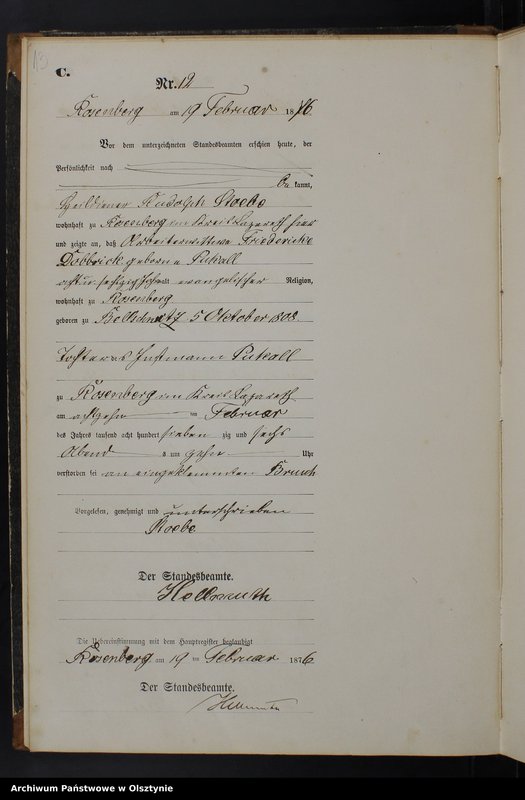 13
C.
Nr. 12
Rosenberg am 19 Februar 1876
Vor dem unterzeichneten Standesbeamten erschien heute, der
Persönlichkeit nach
be kannt,
Rudolph Stoebe
wohnhaft zu Rosenberg im Kreis Lazareth hier
und zeigte an, daß Arbeiterwittwe Friedericke
Dobbrick geborne Pukall
acht und sechszig Jahr alt evangelischer Religion,
wohnhaft zu Rosenberg
geboren zu 5 Oktober 1808
Tochter des Instmann Pukall
zu Rosenberg im Kreis Lazareth
am achtzehn im Februar
des Jahres tausend acht hundert sieben zig und sechs
Abend s um zehn Uhr
verstorben sei an eingeklemmten Bruch
Vorgelesen, genehmigt und unterschrieben
Stoebe
Der Standesbeamte.
Hellmuth
Die Uebereinstimmung mit dem Hauptregister beglaubigt
Rosenberg am 19 ten Februar 1876
Der Standesbeamte.
Hellmuth
Archiwum Państwowe w Olsztynie